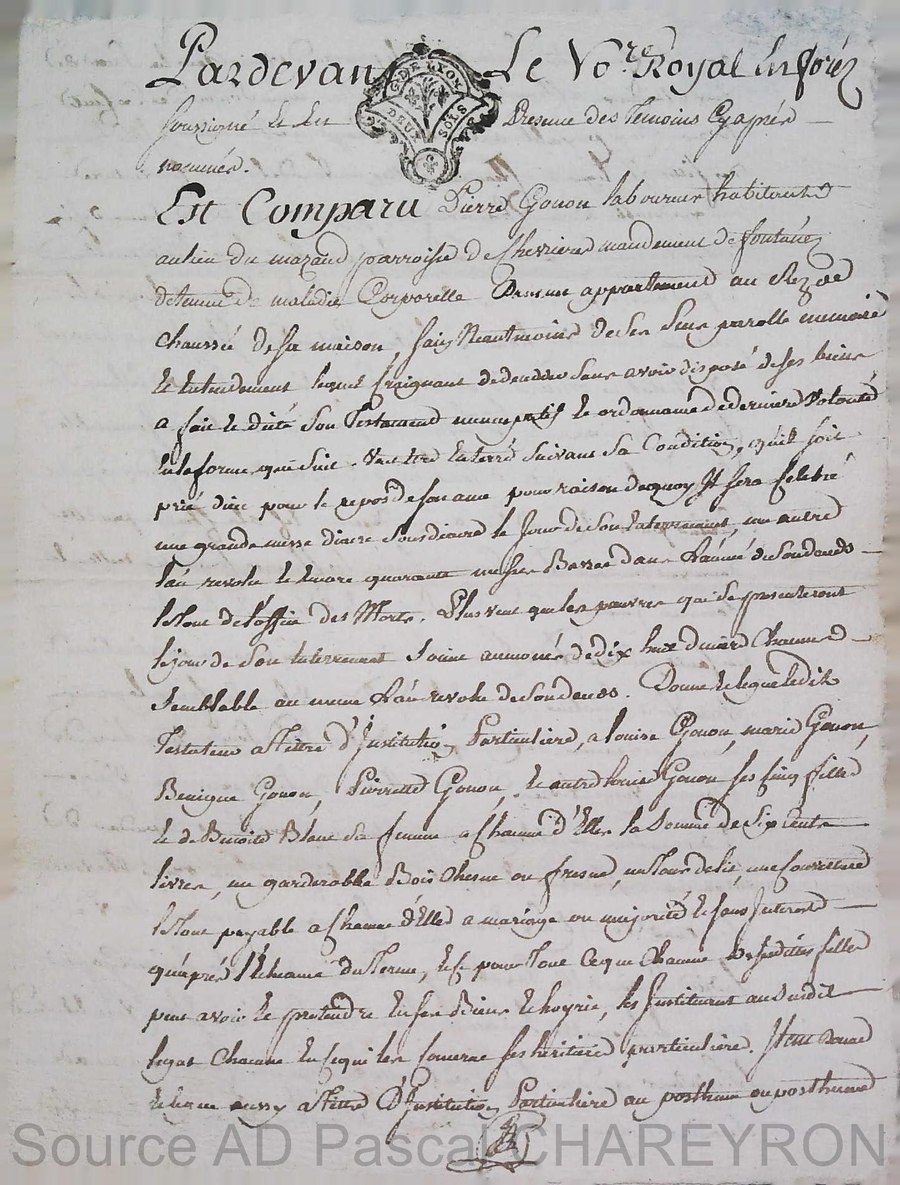 Pardevant Le No.re Royal En forez
soussigné Et En Presence des Temoins Cy apres
nommés.
GDE LYON
DEUX SOLS
Est Comparu Pierre Gonon laboureur habitant
au lieu du mazaud parroisse de Chevriere mandement de fontanez
detenu de maladie Corporelle Dans un appartement au Rez de
chaussé de sa maison, sain Neantmoins de ses sens parolle memoire
Et Entendement lequel Craignant de deceder sans avoir disposé de ses biens
a fait Et dicté son Testament nuncupatif Et ordonnance de derniere Volonté
En la forme que suit. Veut Etre Enterré suivant sa Condition, qu'il soit
prié dieu pour le repos de son ame pour raison de quoy Il sera Celebré
une grande messe diacre sousdiacre le Jour de son Enterrement, une autre
l'an revolu Et Encore quarante messes Basses dans l'année de son deces
le Tout de l'office des Morts. Plus veut que les pauvres qui se presenteront
le jour de son Enterrement Soient aumonés de dix huit deniers Chacun Et
Semblable aumone l'an revolu de son deces. Donne Et legue ledit
Testateur a Tittre d'Institution Particuliere, a louise Gonon, marie Gonon,
Benigne Gonon, Pierrette Gonon, Et autre louise Gonon ses Cinq filles
Et de Benoite Blanc sa femme a Chacune d'Elles la Somme de Six Cents
livres, un garderobbe Bois Chesne ou fresne, un Tour de lit, une Couverture
le Tout payable a Chacune d'Elles a mariage ou majorité Et sans Interest
qu'apres l'Echeance du Terme, Et ce pour Tout Ce que Chacune desdittes filles
peut avoir Et pretendre En ses Biens Et hoyrie, les Instituant au susdit
legat Chacune En Ce qui les Concerne ses heritieres particulieres. Item donne
Et legue aussy a Tittre d'Institution Particuliere au posthume ou posthumes
Source AD Pascal CHAREYRON